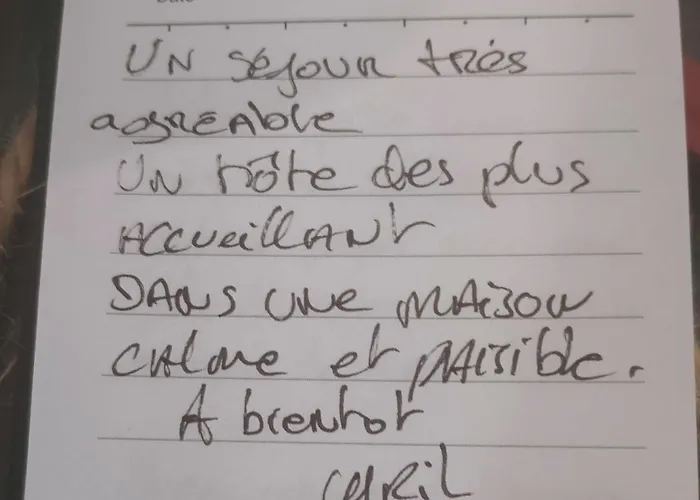 UN séjour très
agréable
UN hôte des plus
Accueillant
DANS une maison
calme et paisible.
A bientot